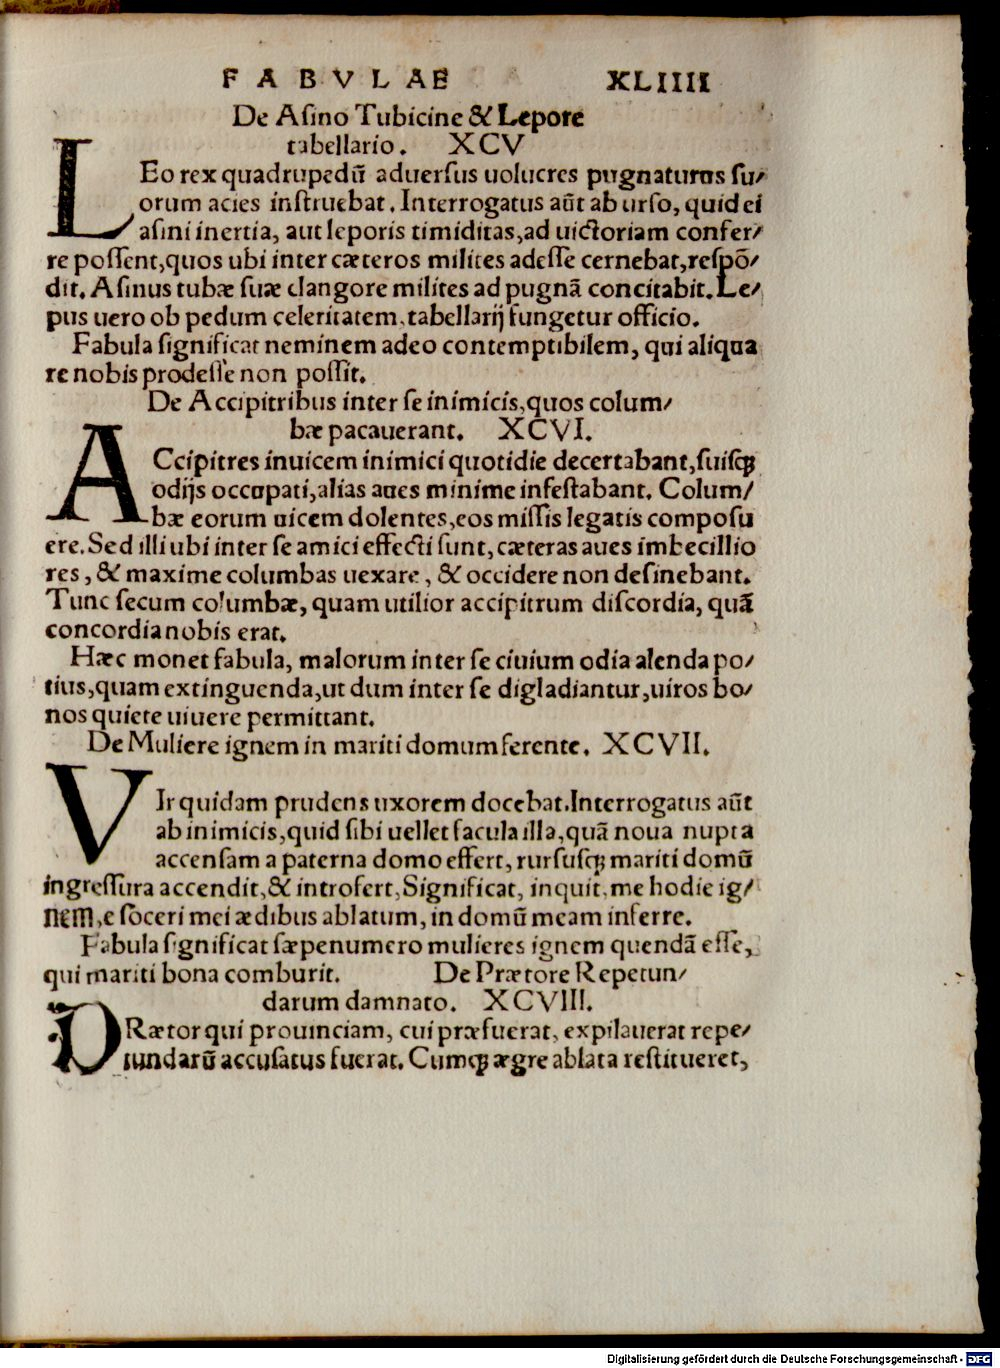 FABVLAE XLIIII
De Aſino Tubicine & Lepore
tabellario. XCV
LEo rex quadrupedū aduerſus uolucres pugnaturus ſu/
orum acies inſtruebat. Interrogatus aūt ab urſo, quid ei
aſini inertia, aut leporis timiditas, ad uictoriam confer/
re poſſent, quos ubi inter cæteros milites adeſſe cernebat, reſpō/
dit. Aſinus tubæ ſuæ clangore milites ad pugnā concitabit. Le/
pus uero ob pedum celeritatem, tabellarij fungetur officio.
Fabula ſignificat neminem adeo contemptibilem, qui aliqua
re nobis prodeſſe non poſſit.
De Accipitribus inter ſe inimicis, quos colum/
bæ pacauerant. XCVI.
ACcipitres inuicem inimici quotidie decertabant, ſuiſq;
odijs occupati, alias aues minime infeſtabant. Colum/
bæ eorum uicem dolentes, eos miſſis legatis compoſu
ere. Sed illi ubi inter ſe amici effecti ſunt, cæteras aues imbecillio
res, & maxime columbas uexare, & occidere non deſinebant.
Tunc ſecum columbæ, quam utilior accipitrum diſcordia, quā
concordia nobis erat.
Hæc monet fabula, malorum inter ſe ciuium odia alenda po/
tius, quam extinguenda, ut dum inter ſe digladiantur, uiros bo/
nos quiete uiuere permittant.
De Muliere ignem in mariti domum ferente. XCVII.
VIr quidam prudens uxorem docebat. Interrogatus aūt
ab inimicis, quid ſibi uellet facula illa, quā noua nupta
accenſam a paterna domo effert, rurſuſq; mariti domū
ingreſſura accendit, & introfert, Significat, inquit, me hodie ig/
nem, e ſoceri mei ædibus ablatum, in domū meam inferre.
Fabula ſignificat ſæpenumero mulieres ignem quendā eſſe,
qui mariti bona comburit. De Prætore Repetun/
darum damnato. XCVIII.
PRætor qui prouinciam, cui præfuerat, expilauerat repe/
tundarū accuſatus fuerat. Cumq; ægre ablata reſtitueret,
Digitalisierung gefördert durch die Deutsche Forschungsgemeinschaft - DFG